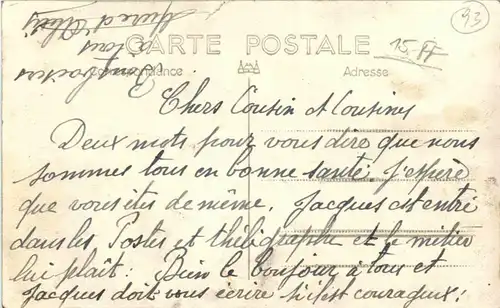 93
CARTE POSTALE
15-FF
Correspondance
Adresse
Chers Cousin et Cousines
Deux mots pour vous dire que nous
sommes tous en bonne santé. J'espère
que vous êtes de même. Jacques est entré
dans les Postes et théligraphe et le métier
lui plait: Bien le bonjour à tous et
Jacques doit vous écrire s'il est couraqux:
à tous